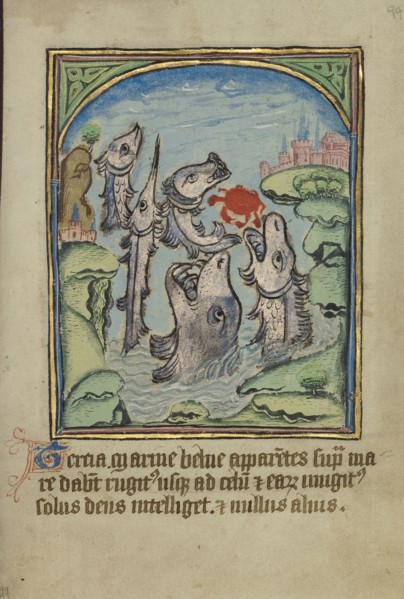 99
Tercia. Marine belue apparẽtes sup̃ ma
re dabũt rugitꝰ usqꝫ ad celũ ⁊ eaꝝ mugitꝰ
solus deus intelliget. ⁊ nullus alius.